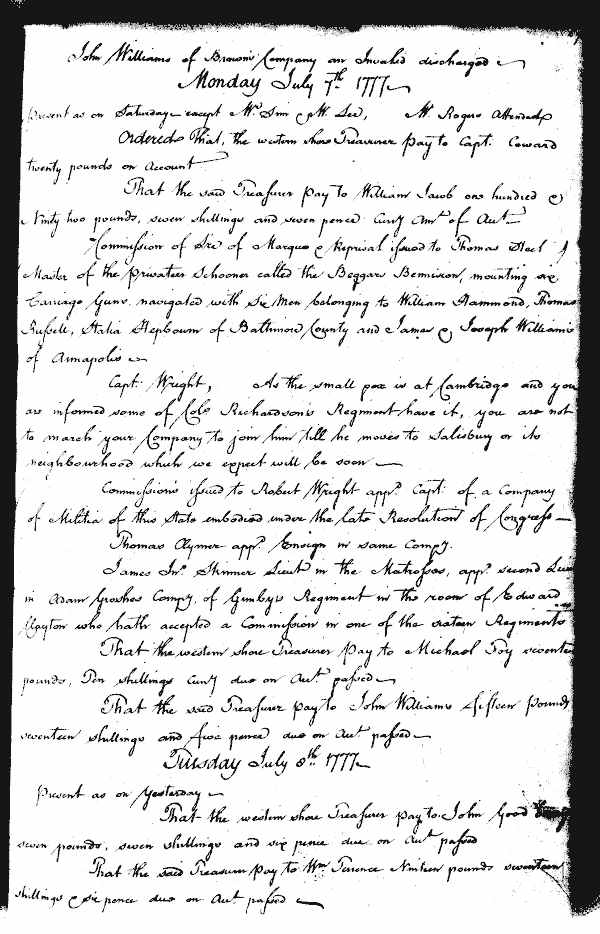 John Williams of Brown's Company an Invalid discharged
Monday July 7th. 1777
Present as on Saturday except Mr. Sim & Mr. Lee, Mr. Rogers Attended
Ordered That, the western shore Treasurer pay to Capt. Coward
twenty pounds on Account
That the said Treasurer Pay to William Jacob one hundred &
Ninty two pounds, seven shillings and seven pence Curry Amt. of Acct.
Commission of Lre of Marque & Reprisal issued to Thomas Steel
Master of the Privateer Schooner called the Beggars Bennison, mounting six
Carriage Guns. navigated with Six Men belonging to William Hammond, Thomas
Russell, Stalia Hepbourn of Baltimore County and James & Joseph Williams
of Annapolis
Capt. Wright, As the small pox is at Cambridge and you
are informed some of Colo. Richardson's Regiment have it, you are not
to march your Company to join him till he moves to Salisbury or its
neighbourhood which we expect will be soon
Commissions issued to Robert Wright appd. Capt. of a Company
of Militia of this State embodied under the late Resolution of Congress
Thomas Clymer appd. Ensign in same Compy.
James Jno. Skinner Lieut in the Matrosses, appd. second Lieu
in Adam Groshes Compy. of Gunbys Regiment in the room of Edward
Clayton who hath accepted a Commission in one of the sixteen Regiments
That the western shore Treasurer Pay to Michael Foy seventeen
pounds, Ten shillings Curry due on Acct. passed
That the said Treasurer Pay to John Williams fifteen Pounds
seventeen shillings and five pence due on Acct passed
Tuesday July 8th. 1777
Present as on Yesterday
That the western shore Treasurer pay to John Good
seven pounds, seven shillings and six pence due on Acct. passed
That the said Treasurer Pay to Wm. Terence Ninteen pounds seventeen
shillings & six pence due on Acct. passed